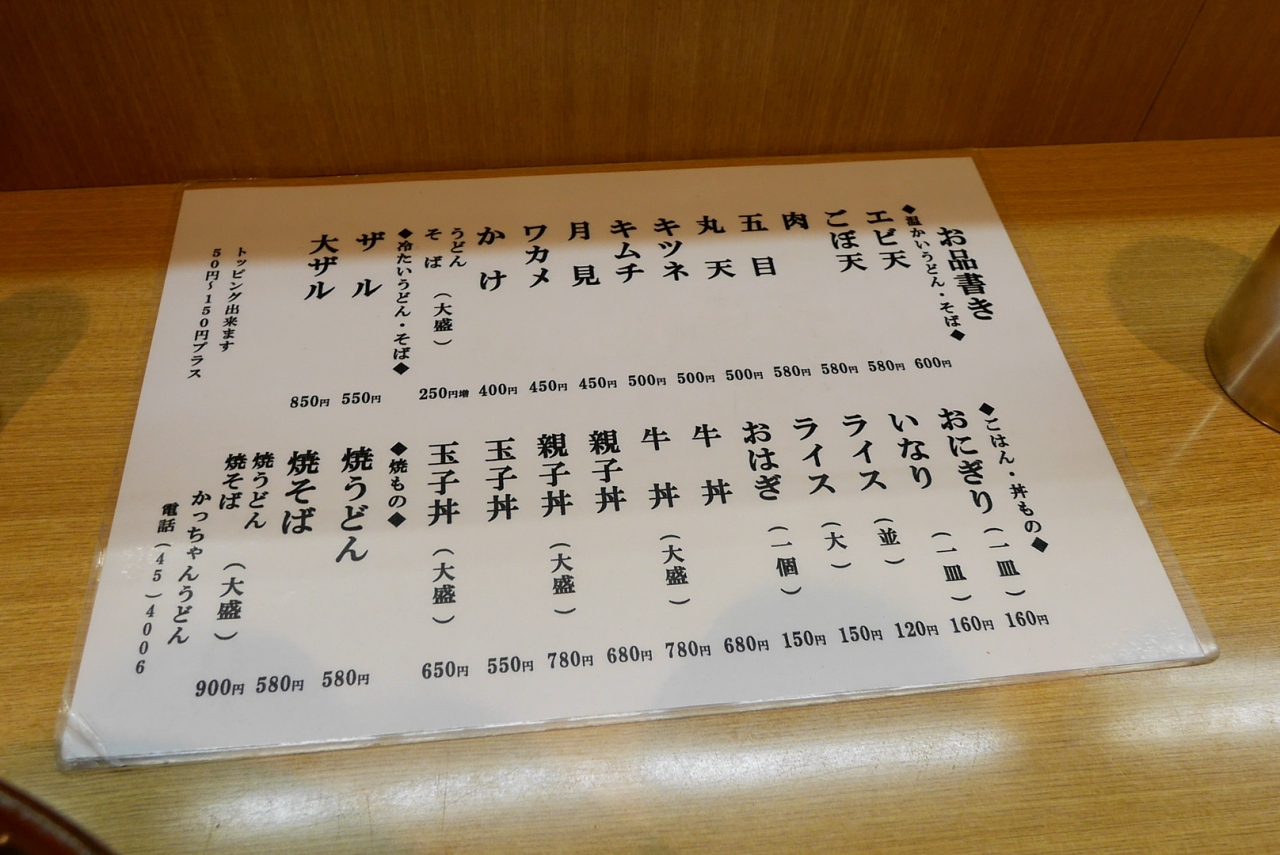 お品書き
◆温かいうどん・そば◆
エビ天 600円
ごぼ天 580円
肉 580円
五目 580円
丸天 500円
キツネ 500円
キムチ 500円
月見 450円
ワカメ 450円
かけ 400円
うどん
そば (大盛) 250円増
◆冷たいうどん・そば◆
ザル 550円
大ザル 850円
トッピング出来ます
50円~150円プラス
◆ごはん・丼もの◆
おにぎり (一皿) 160円
いなり (一皿) 160円
ライス (並) 120円
ライス (大) 150円
おはぎ (一個) 150円
牛丼 680円
牛丼 (大盛) 780円
親子丼 680円
親子丼 (大盛) 780円
玉子丼 550円
玉子丼 (大盛) 650円
◆焼もの◆
焼うどん 580円
焼そば 580円
焼うどん
焼そば (大盛) 900円
かっちゃんうどん
電話(45)4006